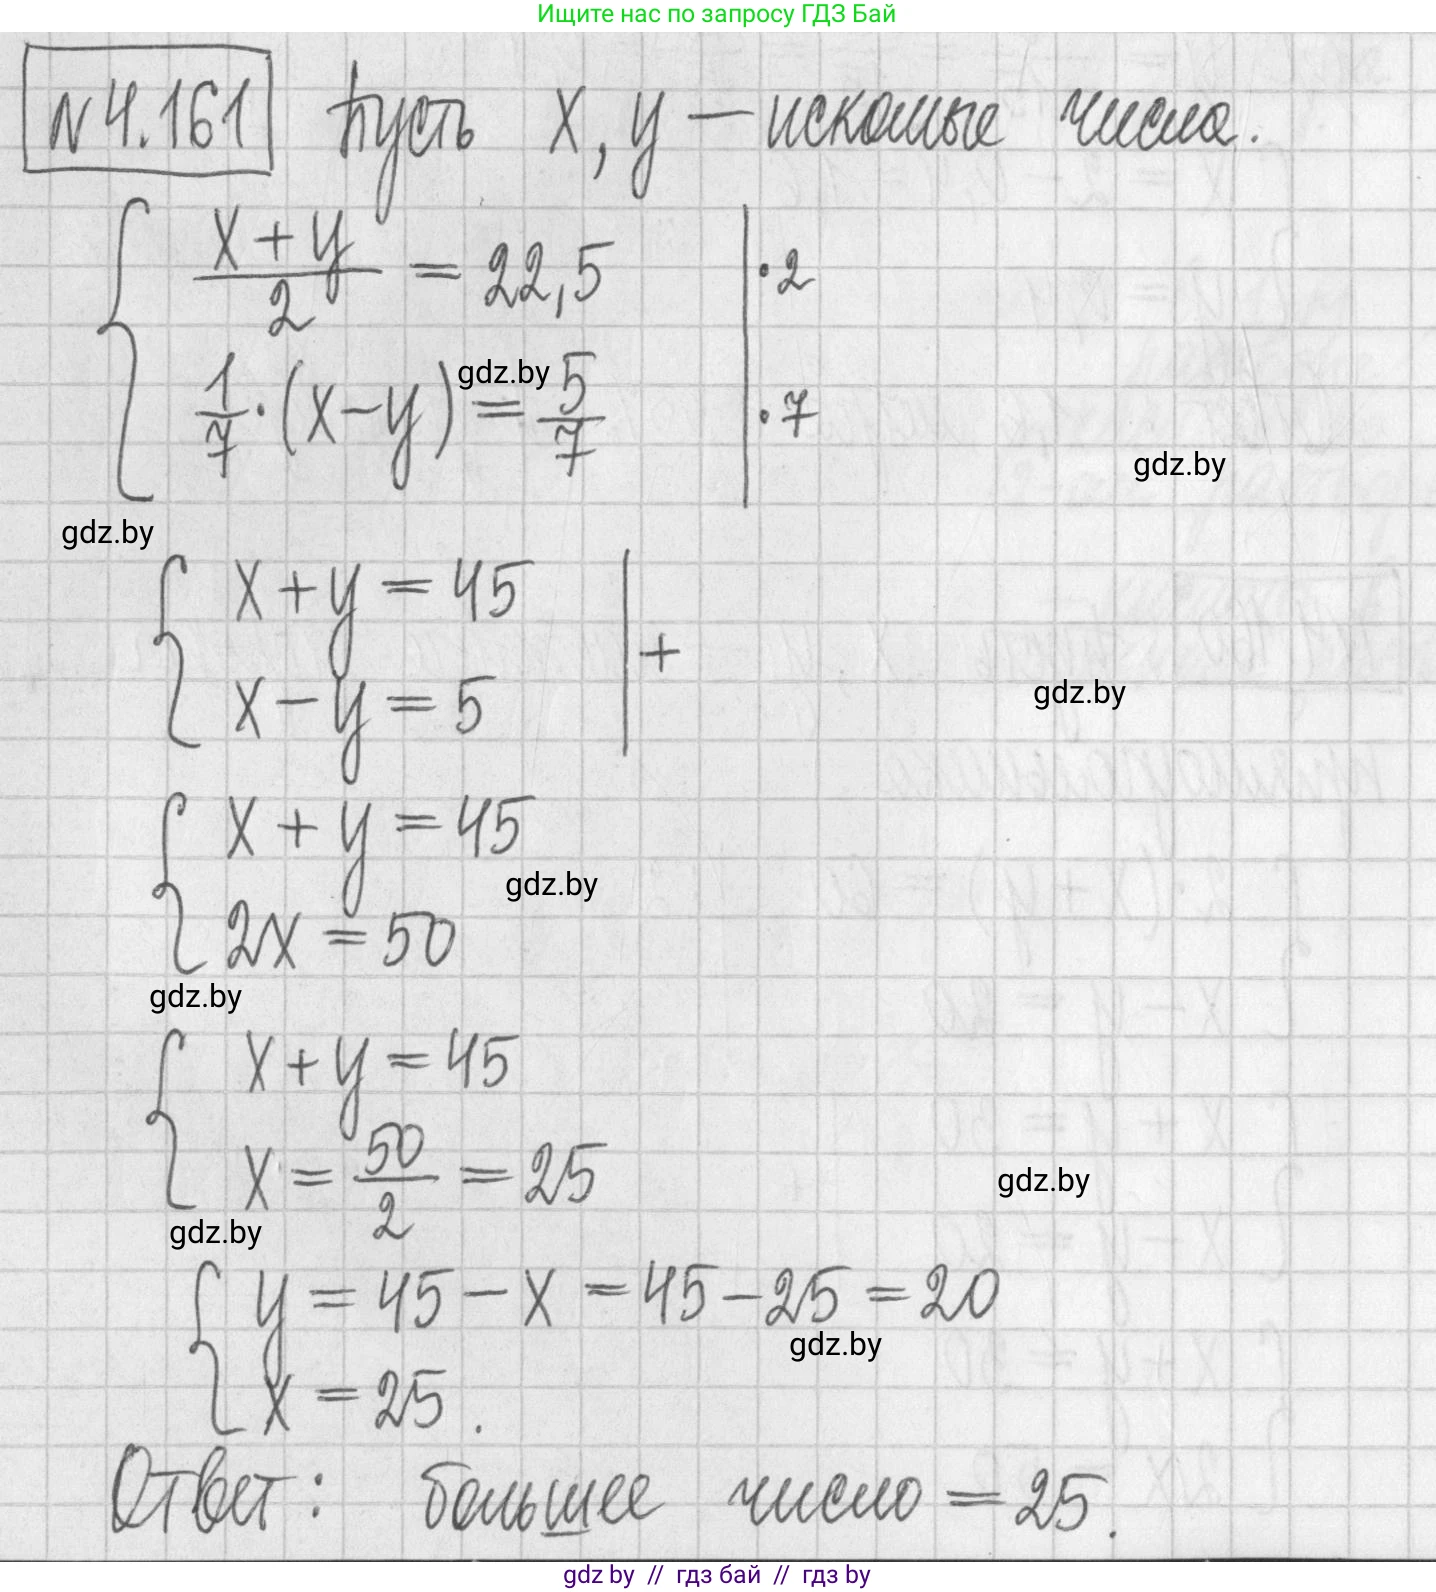 Ищите нас по запросу ГДЗ Бай
N 4.161 Пусть x, y — искомые числа.
{ (x + y)/2 = 22,5 | · 2
{ 1/7 · (x − y) = 5/7 | · 7
gdz.by
gdz.by
gdz.by
{ x + y = 45 | +
{ x − y = 5
gdz.by
{ x + y = 45
gdz.by
{ 2x = 50
gdz.by
{ x + y = 45
{ x = 50/2 = 25
gdz.by
gdz.by
{ y = 45 − x = 45 − 25 = 20
gdz.by
{ x = 25.
Ответ: большее число = 25.
gdz by // гдз бай // гдз by